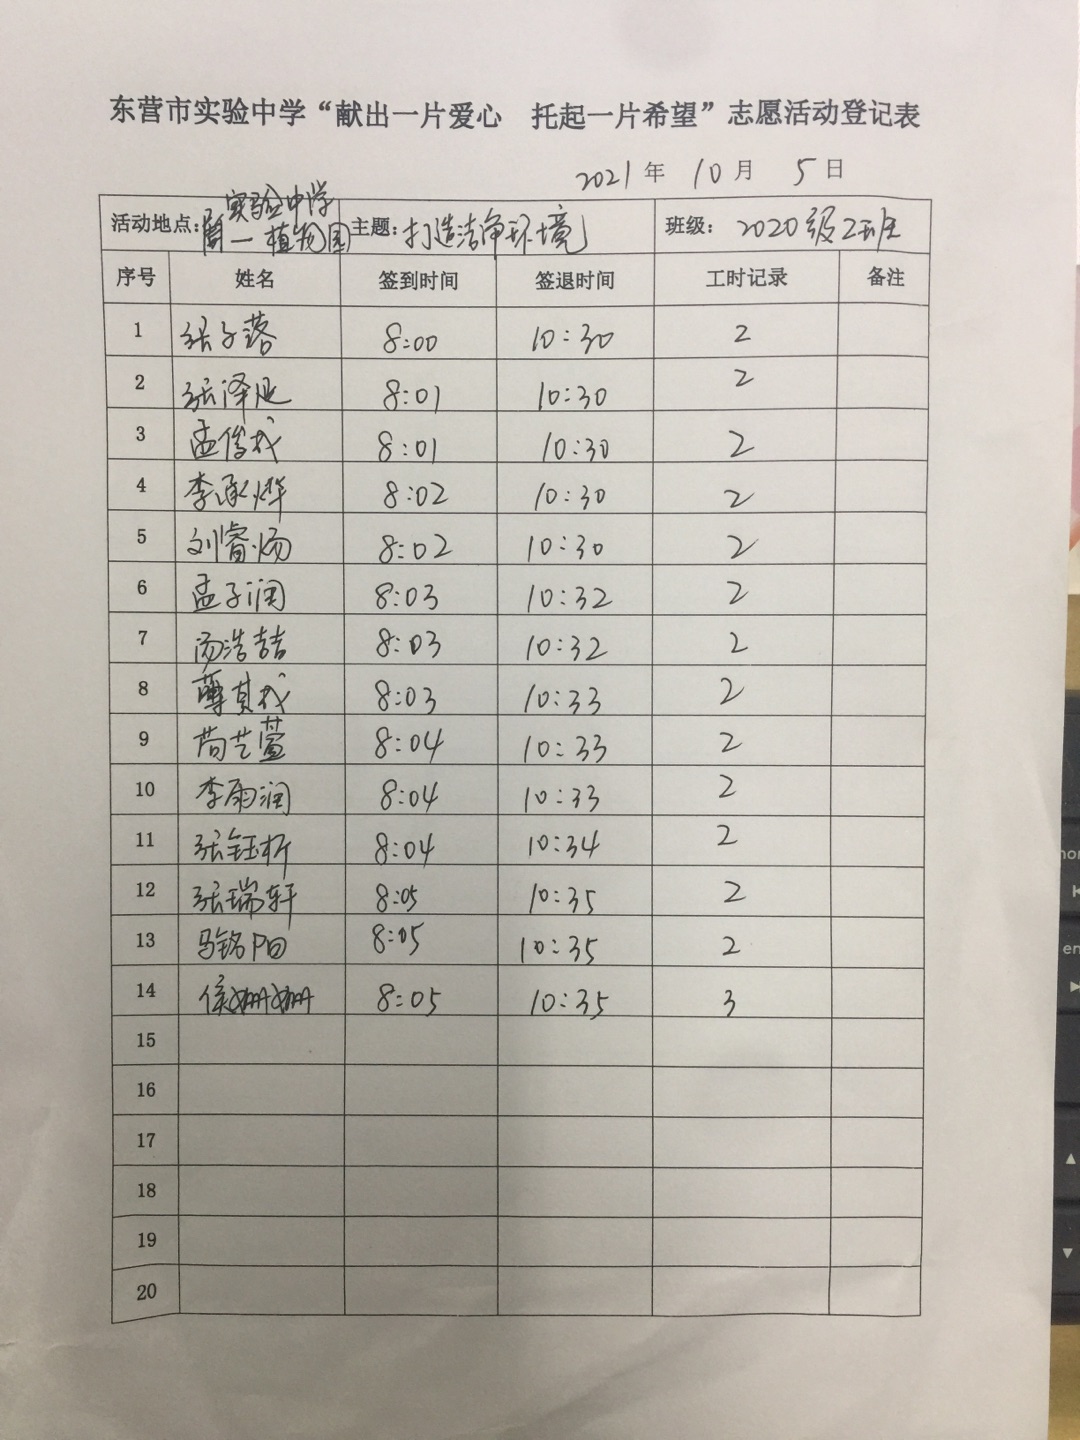 东营市实验中学“献出一片爱心 托起一片希望”志愿活动登记表
2021年 10月 5日
活动地点: 实验中学 一植物园 主题: 打造洁净环境 班级: 2020级2班
序号 姓名 签到时间 签退时间 工时记录 备注
1 张子落 8:00 10:30 2
2 张泽 8:01 10:30 2
3 孟俊成 8:01 10:30 2
4 李承烨 8:02 10:30 2
5 刘睿炀 8:02 10:30 2
6 孟子润 8:03 10:32 2
7 汤浩喆 8:03 10:32 2
8 薄其成 8:03 10:33 2
9 苟艺萱 8:04 10:33 2
10 李雨润 8:04 10:33 2
11 张钰析 8:04 10:34 2
12 张瑞轩 8:05 10:35 2
13 马铭阳 8:05 10:35 2
14 侯姗姗 8:05 10:35 3
15
16
17
18
19
20